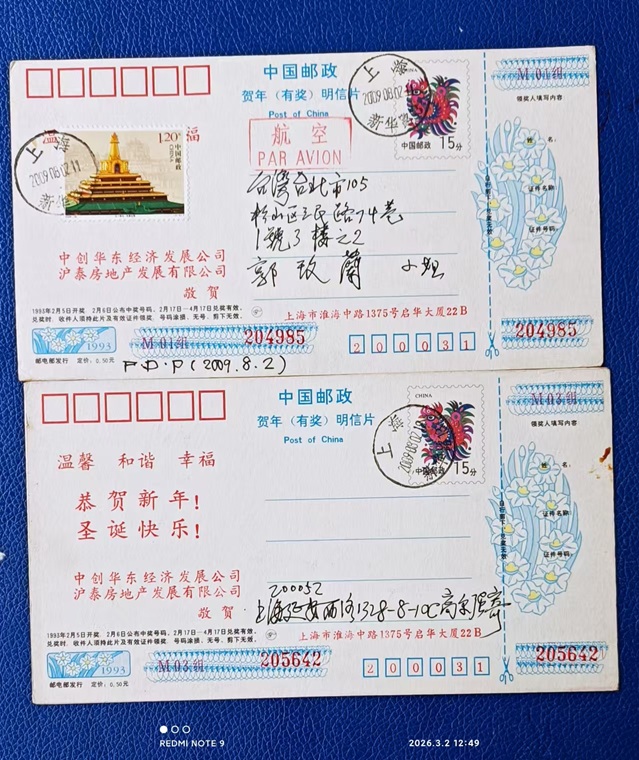 中国邮政
贺年(有奖)明信片
Post of China
CHINA
中国邮政 15分
上海
2009.08.02
新华
M 01组
领奖人填写内容
姓 名:
证件名称:
证件号码:
1.20元
中国邮政
CHINA
温 福
上海
2009.08.02.11
新华
航 空
PAR AVION
台灣台北市105
松山區三民路74巷
1號3樓之2
郭 玫 蘭 小姐
中创华东经济发展公司
沪泰房地产发展有限公司
敬 贺
上海市淮海中路1375号启华大厦22B
1993年2月5日开奖 2月6日公布中奖号码, 2月17日—4月17日兑奖有效,
兑奖时、收件人须持此片及有效证件领奖 号码涂损、无号、剪下无效。
1993
M 01组
204985
200031
204985
邮电部发行 定价: 0.50元
F.D.P(2009.8.2)
中国邮政
贺年(有奖)明信片
Post of China
CHINA
中国邮政 15分
上海
2009.08.02
M 03组
领奖人填写内容
姓 名:
证件名称:
证件号码:
温馨 和谐 幸福
恭贺新年!
圣诞快乐!
中创华东经济发展公司
沪泰房地产发展有限公司
敬 贺
200052
上海延安西路1328-8-10C
上海市淮海中路1375号启华大厦22B
1993年2月5日开奖 2月6日公布中奖号码, 2月17日—4月17日兑奖有效,
兑奖时、收件人须持此片及有效证件领奖 号码涂损、无号、剪下无效。
1993
M 03组
205642
200031
205642
邮电部发行 定价: 0.50元
REDMI NOTE 9
2026.3.2 12:49